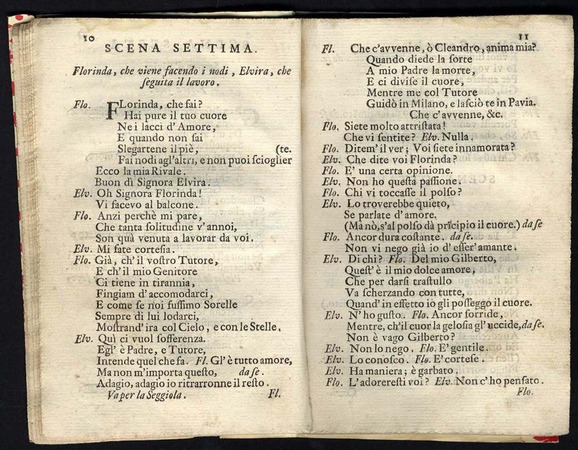 10
SCENA SETTIMA.
Florinda, che viene facendo i nodi, Elvira, che
seguita il lavoro.
Flo. FLorinda, che fai?
Hai pure il tuo cuore
Ne i lacci d'Amore,
E quando non sai
Slegartene il piè, (te.
Fai nodi agl'altri, e non puoi scioglier
Ecco la mia Rivale.
Buon dì Signora Elvira.
Elv. Oh Signora Florinda!
Vi facevo al balcone.
Flo. Anzi perchè mi pare,
Che tanta solitudine v'annoi,
Son quà venuta a lavorar da voi.
Elv. Mi fate cortesia.
Flo. Già, ch'il vostro Tutore,
E ch'il mio Genitore
Ci tiene in tirannia,
Fingiam d'accomodarci,
E come se noi fussimo Sorelle
Sempre di lui lodarci,
Mostrand'ira col Cielo, e con le Stelle.
Elv. Quì ci vuol sofferenza.
Egl'è Padre, e Tutore,
Intende quel che fa. Fl. Gl'è tutto amore,
Ma non m'importa questo, da se.
Adagio, adagio io ritrarronne il resto.
Va per la Seggiola. Fl.
11
Fl. Che c'avvenne, ò Cleandro, anima mia?
Quando diede la sorte
A mio Padre la morte,
E ci divise il cuore,
Mentre me col Tutore
Guidò in Milano, e lasciò te in Pavia.
Che c'avvenne, &c.
Flo. Siete molto attristata!
Che vi sentite? Elv. Nulla.
Flo. Ditem'il ver; Voi siete innamorata?
Elv. Che dite voi Florinda?
Flo. E' una certa opinione.
Elv. Non hò questa passione.
Flo. Chi vi toccasse il polso?
Elv. Lo troverebbe quieto,
Se parlate d'amore.
(Ma nò, s'al polso dà principio il cuore.) da se
Flo. Ancor dura costante. da se.
Non vi nego già io d'esser'amante.
Elv. Di chi? Flo. Del mio Gilberto,
Quest'è il mio dolce amore,
Che per darsi trastullo
Va scherzando con tutte,
Quand'in effetto io gli posseggo il cuore.
Elv. N'ho gusto. Flo. Ancor sorride,
Mentre, ch'il cuor la gelosia gl'uccide, da se.
Non è vago Gilberto?
Elv. Non lo nego. Flo. E' gentile.
Elv. Lo conosco. Flo. E' cortese.
Elv. Ha maniera; è garbato.
Flo. L'adoreresti voi? Elv. Non c'ho pensato.
Flo.